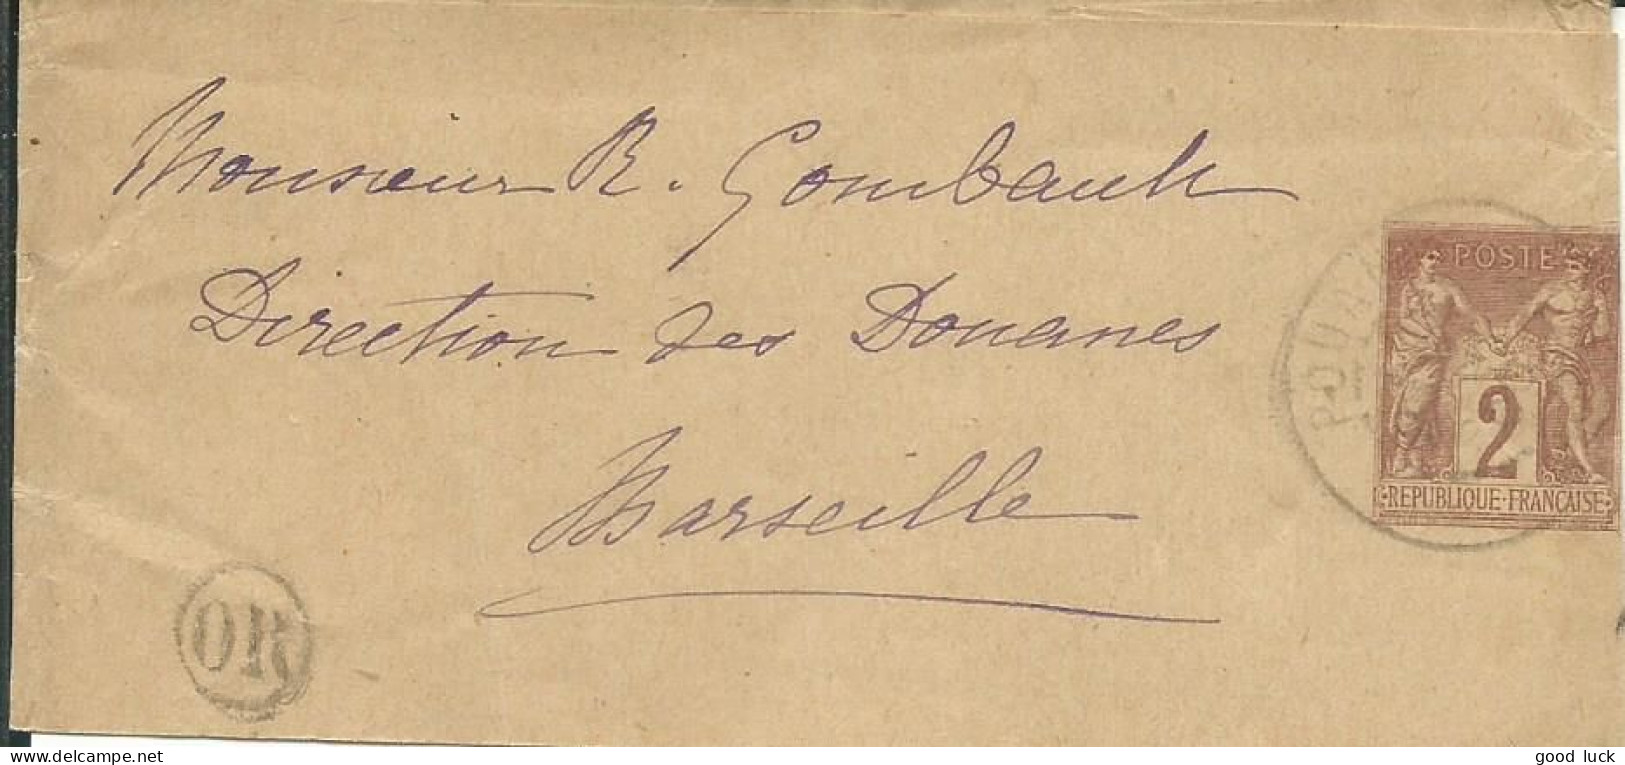 Monsieur R. Gombault
Direction des Douanes
Marseille
POSTE
2
REPUBLIQUE FRANCAISE
OR
good luck